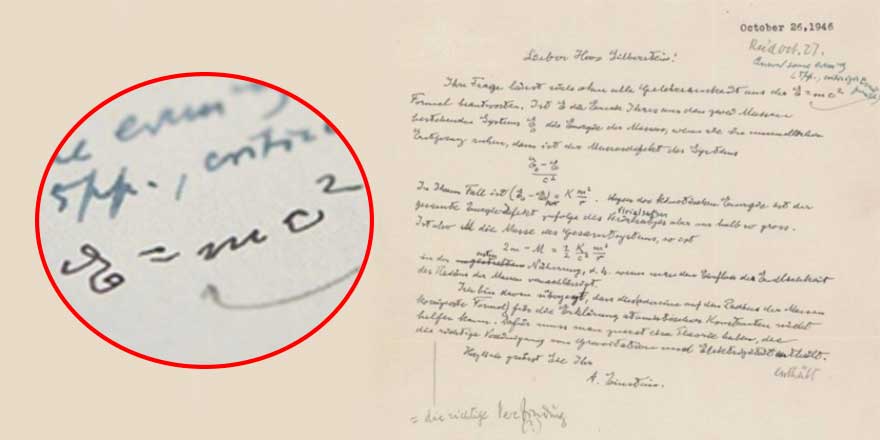 October 26, 1946
Rec'd Oct. 27.
5pp., critici
E = mc²
Lieber Herr Silberstein!
Ihre Frage lässt sich ohne alle Gelehrsamkeit aus der E = mc²
Formel beantworten. Ist E die Energie Ihres aus den zwei Massen
bestehenden Systems E₀ die Energie der Massen, wenn sie in unendlicher
Entfernung ruhen, dann ist der Massendefekt des Systems
E₀ - E
c²
In Ihrem Fall ist (E₀ - E) = K m²/r. Wegen der kinetischen Energie ist der
gesamte Energiedefekt zufolge des Virialsatzes aber nur halb so gross.
Ist also M die Masse des Gesamtsystems, so ist
2m - M = ½ K/c² m²/r
in der ersten Näherung, d. h. wenn man den Einfluss der Endlichkeit
des Radius der Massen vernachlässigt.
Ich bin davon überzeugt, dass die auf den Radius der Massen
korrigierte Formel) für die Erklärung atomistischer Konstanten nicht
helfen kann. Dafür muss man zuerst eine Theorie haben, die
die richtige Vereinigung von Gravitation und Elektrizität enthält.
enthält
Herzlich grüsst Sie Ihr
A. Einstein.
= die richtige Verbindung